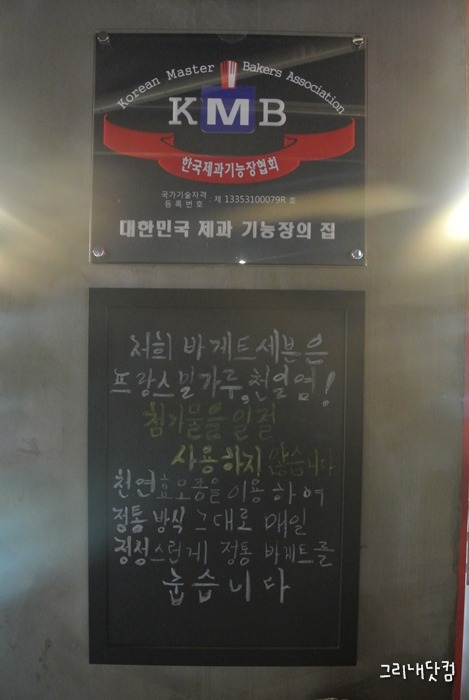 Korean Master Bakers Association
KMB
한국제과기능장협회
국가기술자격
등록번호 : 제 13353100079R 호
대한민국 제과 기능장의 집
저희 바게트세븐은
프랑스밀가루,천일염!
첨가물을 일절
사용하지 않습니다
천연효모종을이용하여
정통방식 그대로 매일
정성스런게 정통 바게트를
굽습니다
그리내닷컴